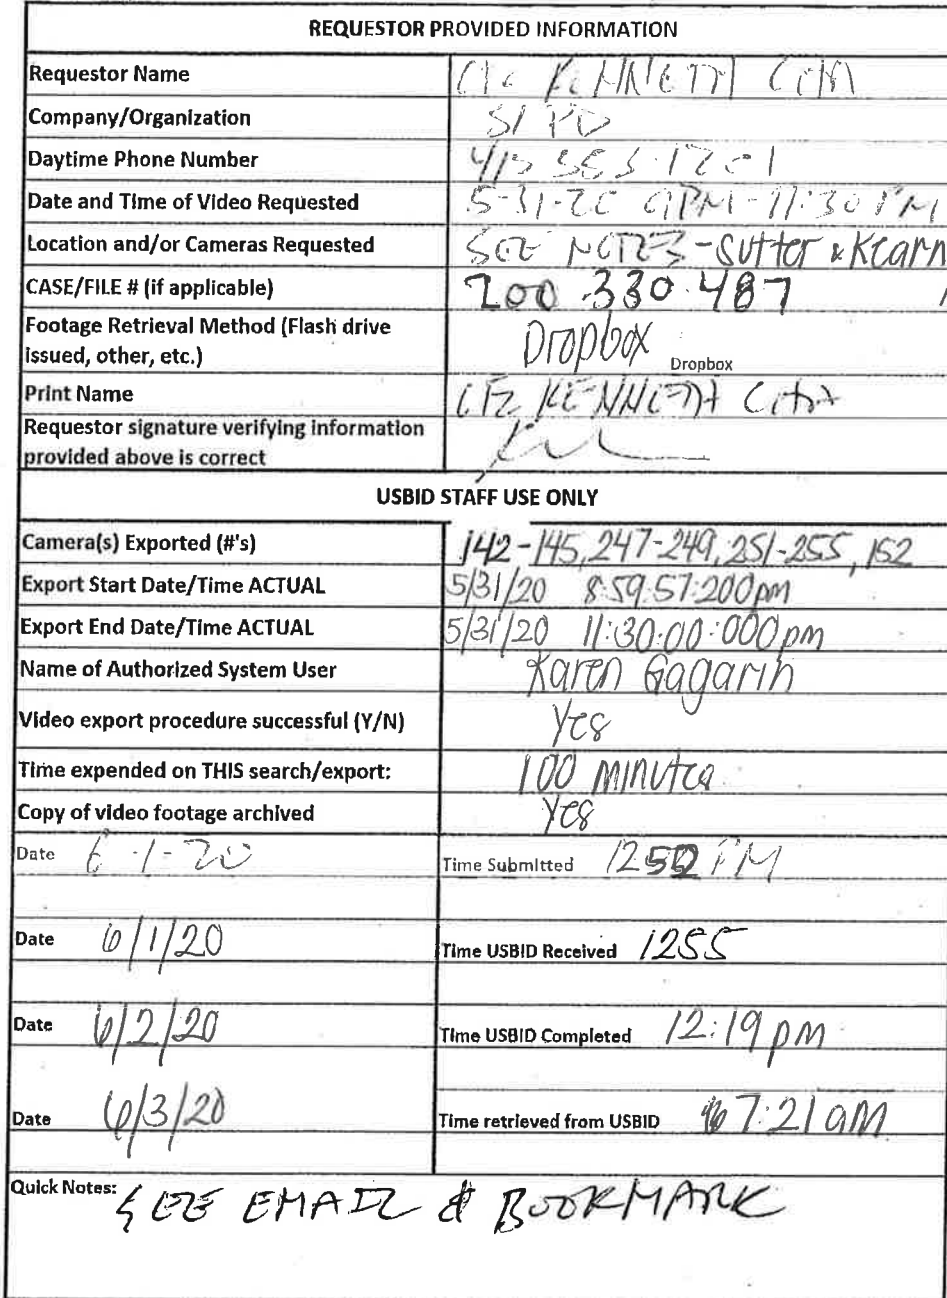 REQUESTOR PROVIDED INFORMATION
Requestor Name KENNETH
Company/Organization PD
Daytime Phone Number 415
Date and Time of Video Requested 5-31-20 9PM-11:30 PM
Location and/or Cameras Requested SEE NOTES - Sutter & Kearn
CASE/FILE # (if applicable) 200 330 487
Footage Retrieval Method (Flash drive
issued, other, etc.) Dropbox Dropbox
Print Name KENNETH
Requestor signature verifying information
provided above is correct
USBID STAFF USE ONLY
Camera(s) Exported (#'s) 142-145, 247-249, 251-255, 152
Export Start Date/Time ACTUAL 5/31/20 8:59:57:200pm
Export End Date/Time ACTUAL 5/31/20 11:30:00:000pm
Name of Authorized System User Karen Gagarin
Video export procedure successful (Y/N) Yes
Time expended on THIS search/export: 100 minutes
Copy of video footage archived Yes
Date 6-1-20 Time Submitted 1250 PM
Date 6/1/20 Time USBID Received 1255
Date 6/2/20 Time USBID Completed 12:19 pm
Date 6/3/20 Time retrieved from USBID 7:21 am
Quick Notes: SEE EMAIL & BOOKMARK